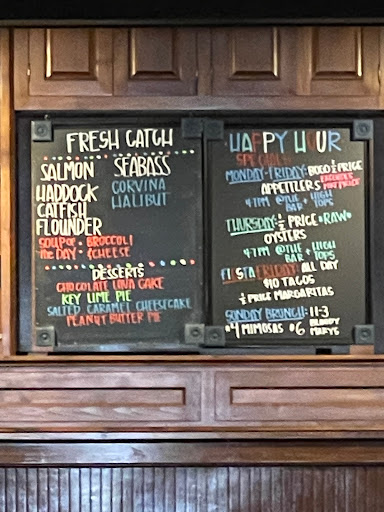 FRESH CATCH
SALMON
HADDOCK
CATFISH
FLOUNDER
SEABASS
CORVINA
HALIBUT
SOUP OF • BROCCOLI
THE DAY • & CHEESE
DESSERTS
CHOCOLATE LAVA CAKE
KEY LIME PIE
SALTED CARAMEL CHEESECAKE
PEANUT BUTTER PIE
HAPPY HOUR
SPECIALS
MONDAY-FRIDAY: BOGO ½ PRICE
APPETIZERS
4-7PM @THE BAR + HIGH TOPS
THURSDAY: ½ PRICE *RAW*
OYSTERS
4-7PM @THE BAR + HIGH TOPS
FIESTA FRIDAY: ALL DAY
$10 TACOS
½ PRICE MARGARITAS
SUNDAY BRUNCH: 11-3
$4 MIMOSAS $6 BLOODY MARYS